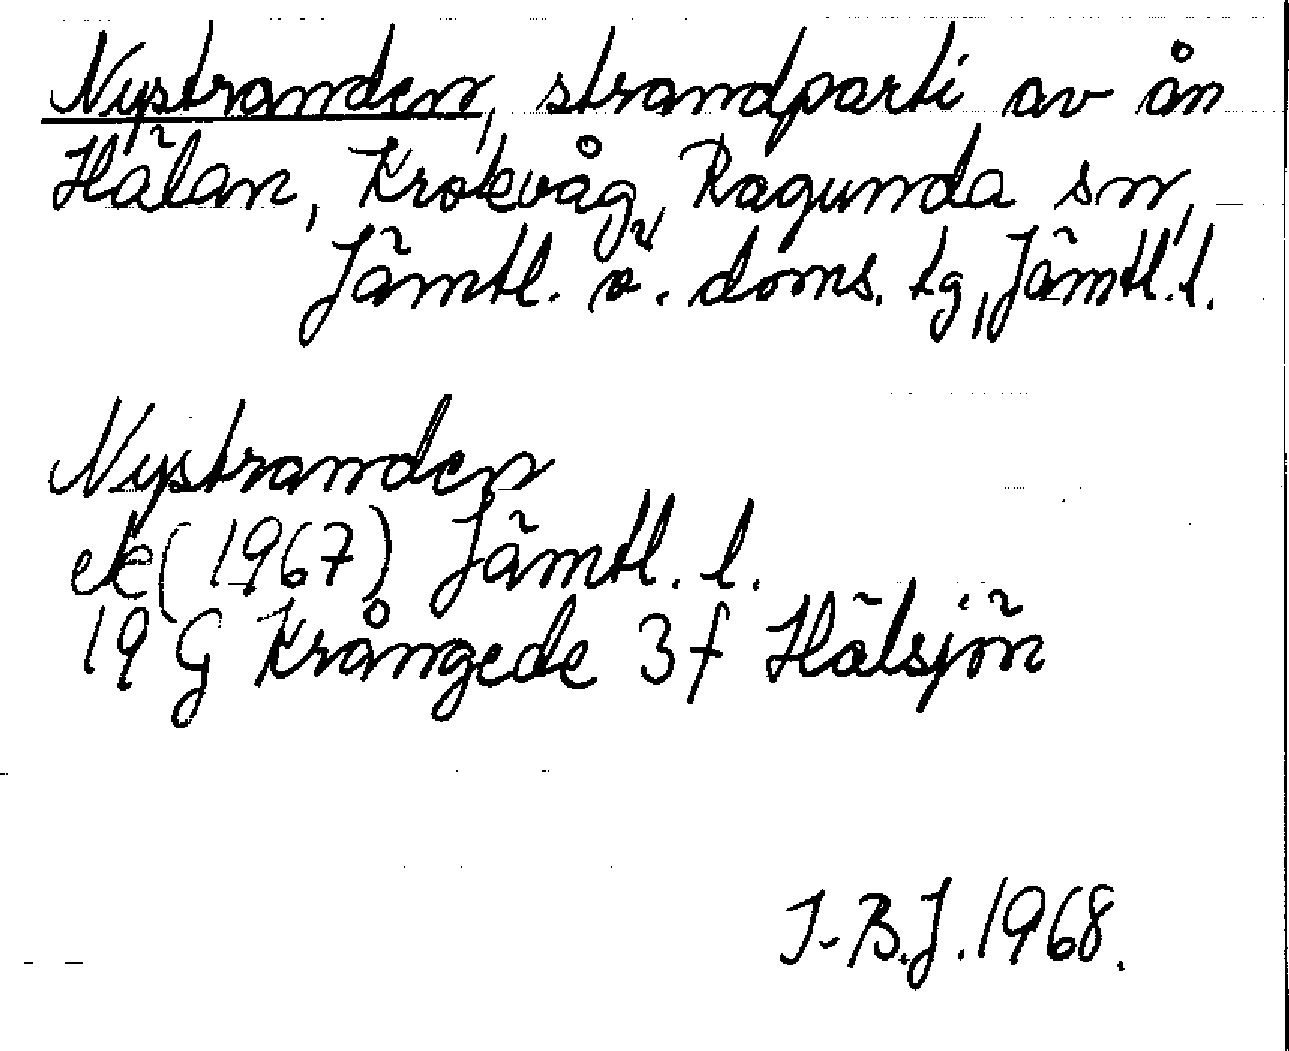 Nystranden, strandparti av ån
Hälan, Krokvåg, Ragunda sn,
Jämtl. ö. doms. tg, Jämtl. l.
Nystranden
ek (1967) Jämtl. l.
19 G Krångede 3 f Hälsjön
I-B.J. 1968.